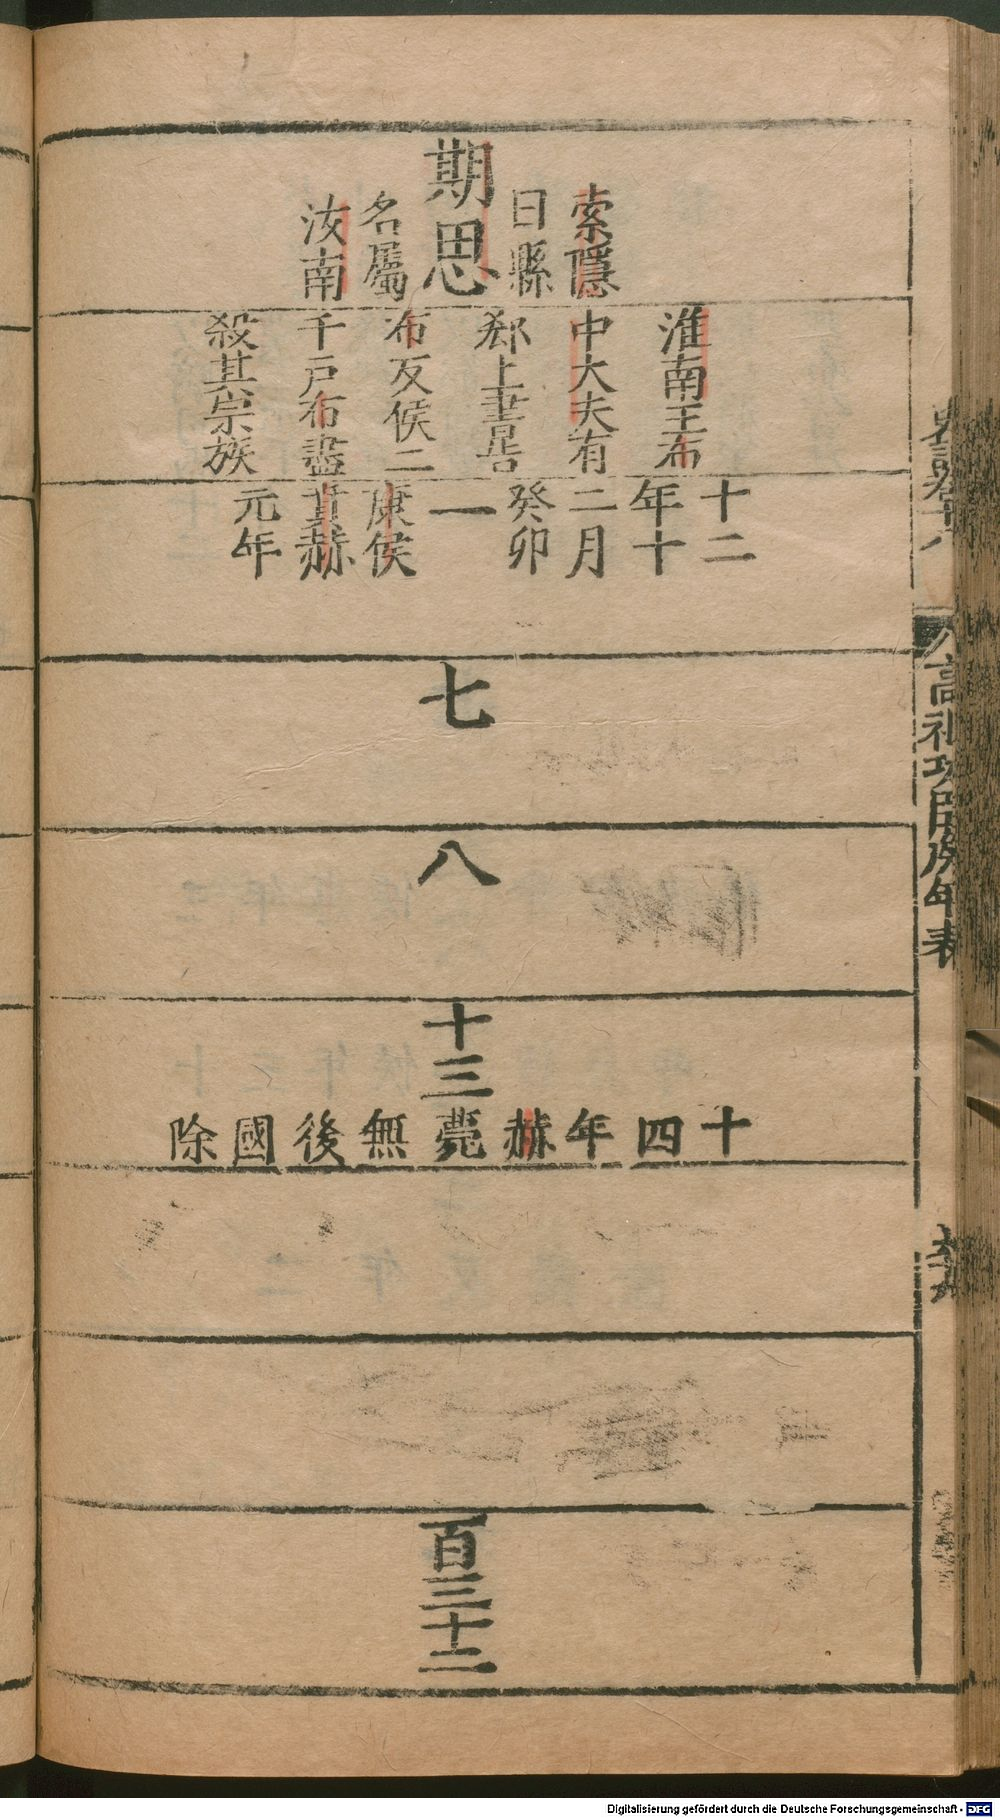 期思
索隱
曰縣
名屬
汝南
淮南王布
中大夫有
郄上書告
布反侯二
千戶布盡
殺其宗族
十二
年十
二月
癸卯
一
康侯
賁赫
元年
七
八
十三
十四年赫薨無後國除
百三十二
史記卷十八
高祖功臣侯年表
Digitalisierung gefördert durch die Deutsche Forschungsgemeinschaft - DFG